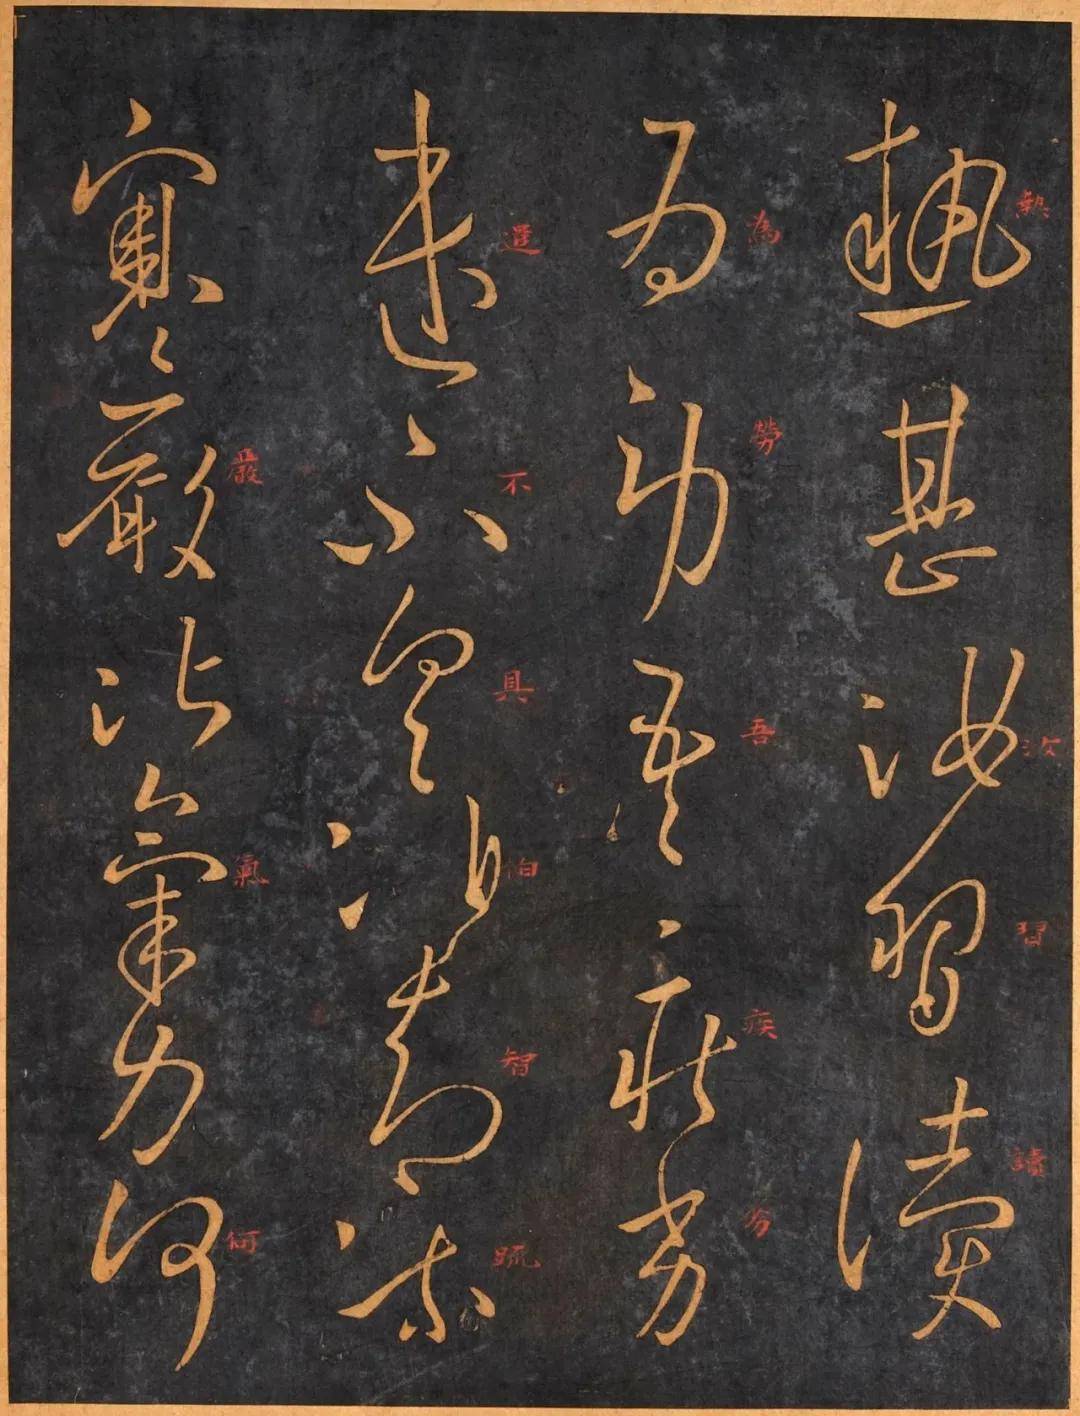 熱甚汝習讀
熱汝習讀
為勞吾疾劣
為勞吾疾
遲不具伯智疏
遲不具伯智疏
寒嚴氣力何
嚴氣何